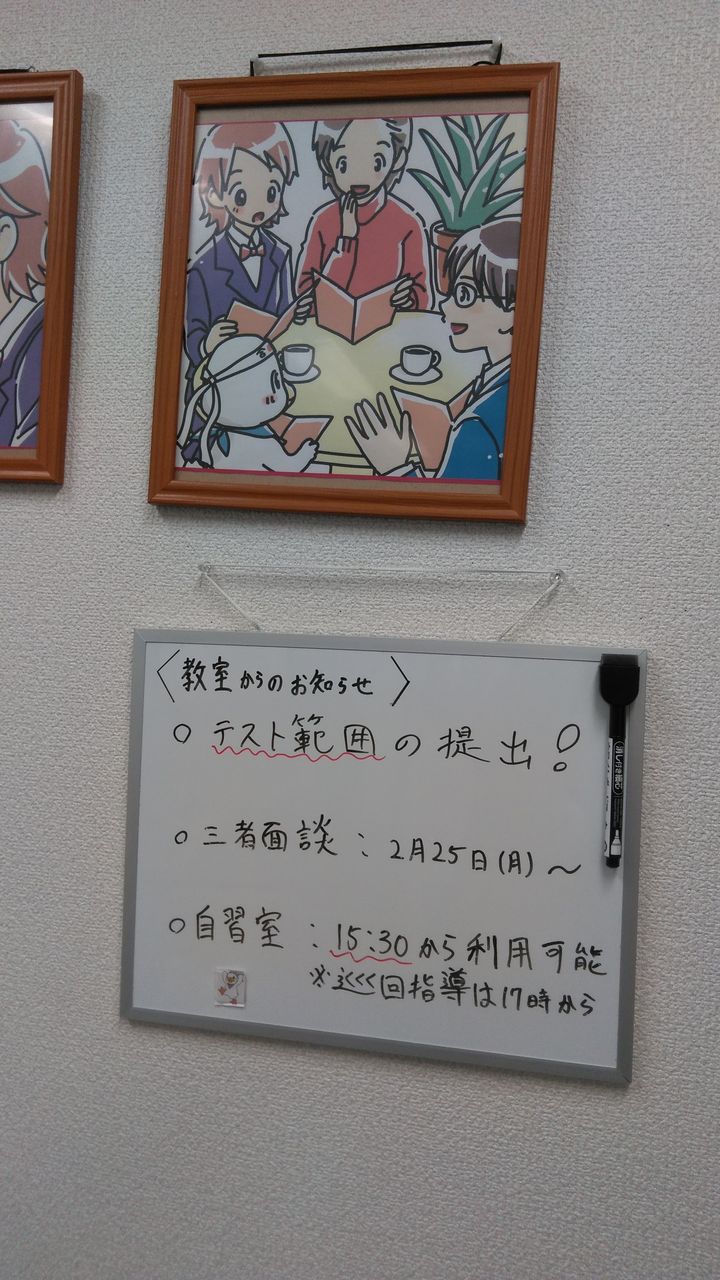 〈教室からのお知らせ〉
○ テスト範囲の提出！
○ 三者面談：2月25日(月)〜
○ 自習室：15:30から利用可能
※巡回指導は17時から